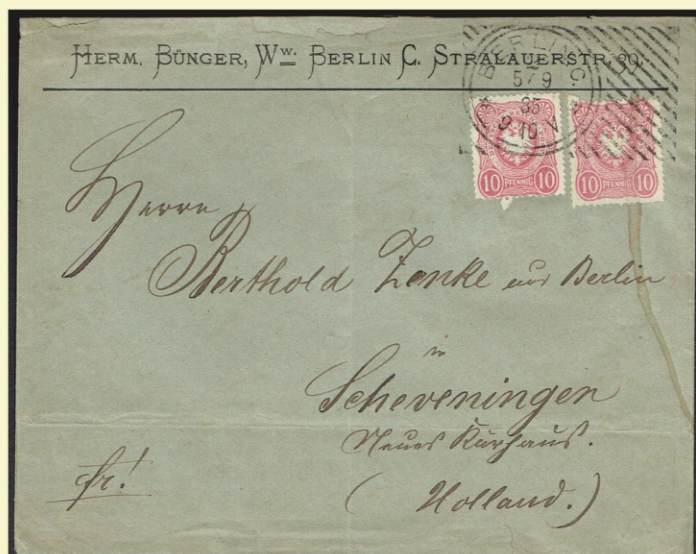 HERM. BÜNGER, Ww. BERLIN C. STRALAUERSTR.
BERLIN, C.
5/9
85
9-10 V
10 PFENNIG 10
10 PFENNIG 10
Herrn
Berthold Zenke aus Berlin
in
Scheveningen
Neues Kurhaus.
fr!
(Holland.)